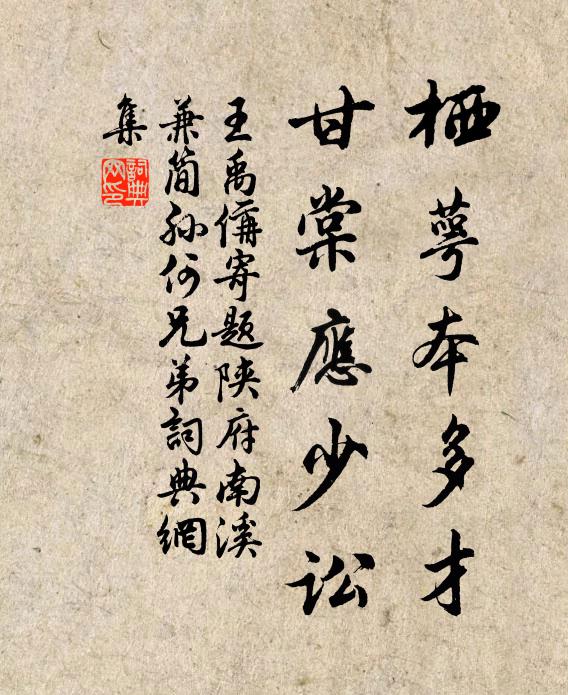 栖萼本多才
甘棠應少訟
王禹偁寄題陝府南溪
兼簡孫何兄弟詞典網
集
詞典
网印